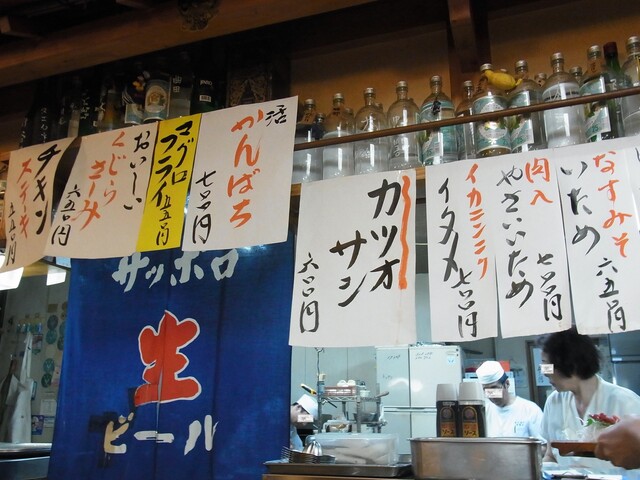 なすみそ
いため
六五〇円
肉入
やさいいため
七〇〇円
イカニンニク
イタメ
七〇〇円
カツオ
サシ
六〇〇円
活
かんぱち
七〇〇円
マグロ
フライ
五五〇円
おいしい
くじら
さしみ
六五〇円
チキン
ステーキ
サッポロ
生
ビール